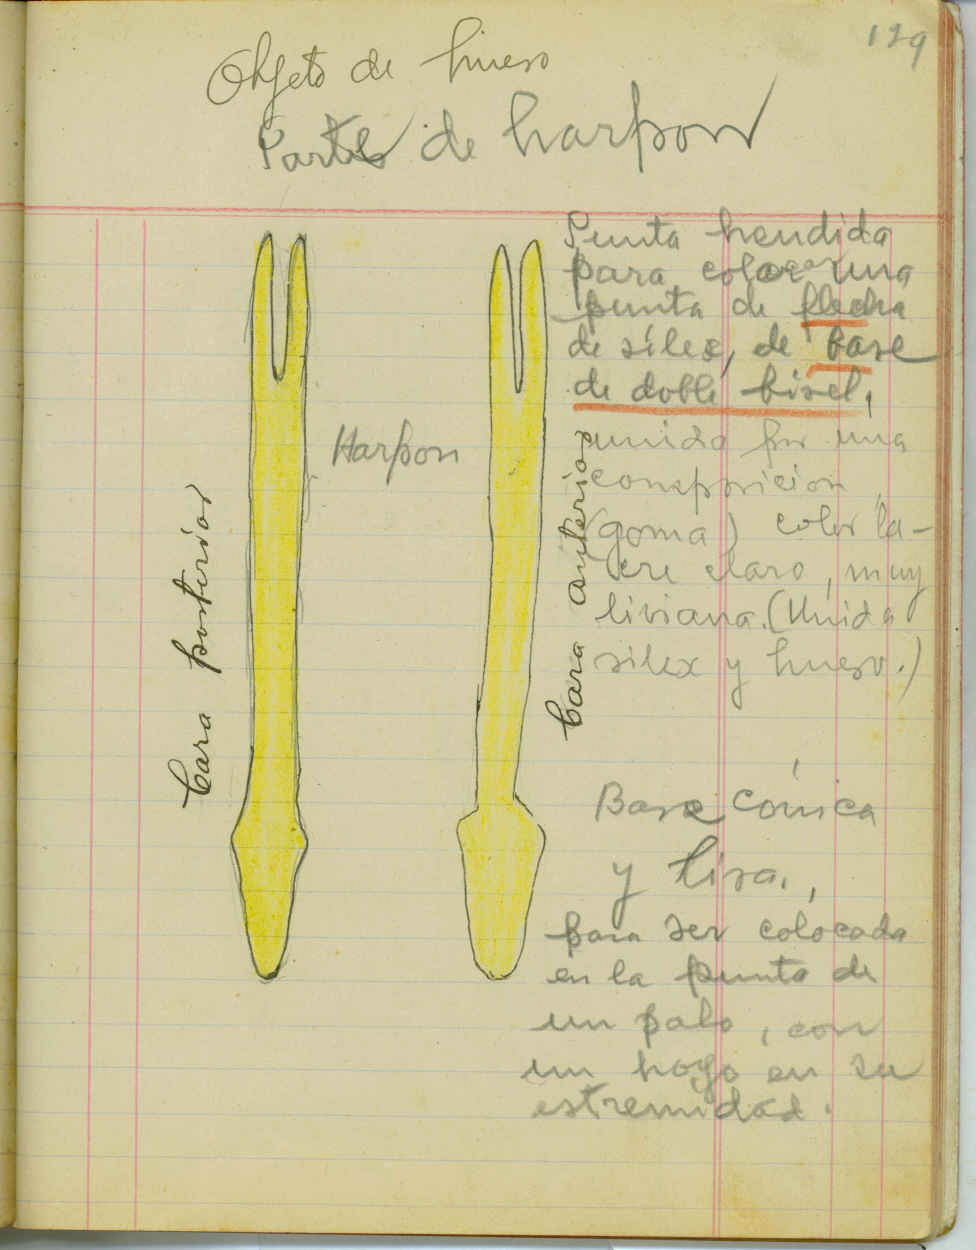 129
Objeto de hueso
Parte de harpon
Punta hendida
para colocar una
punta de flecha
de sílex, de base
de doble bisel,
unida por una
composicion
(goma) color la-
cre claro, muy
liviana. (Unida
silex y hueso.)
Harpon
Cara posterior
Cara anterior
Base cónica
y lisa,
para ser colocada
en la punta de
un palo, con
un hoyo en su
estremidad.